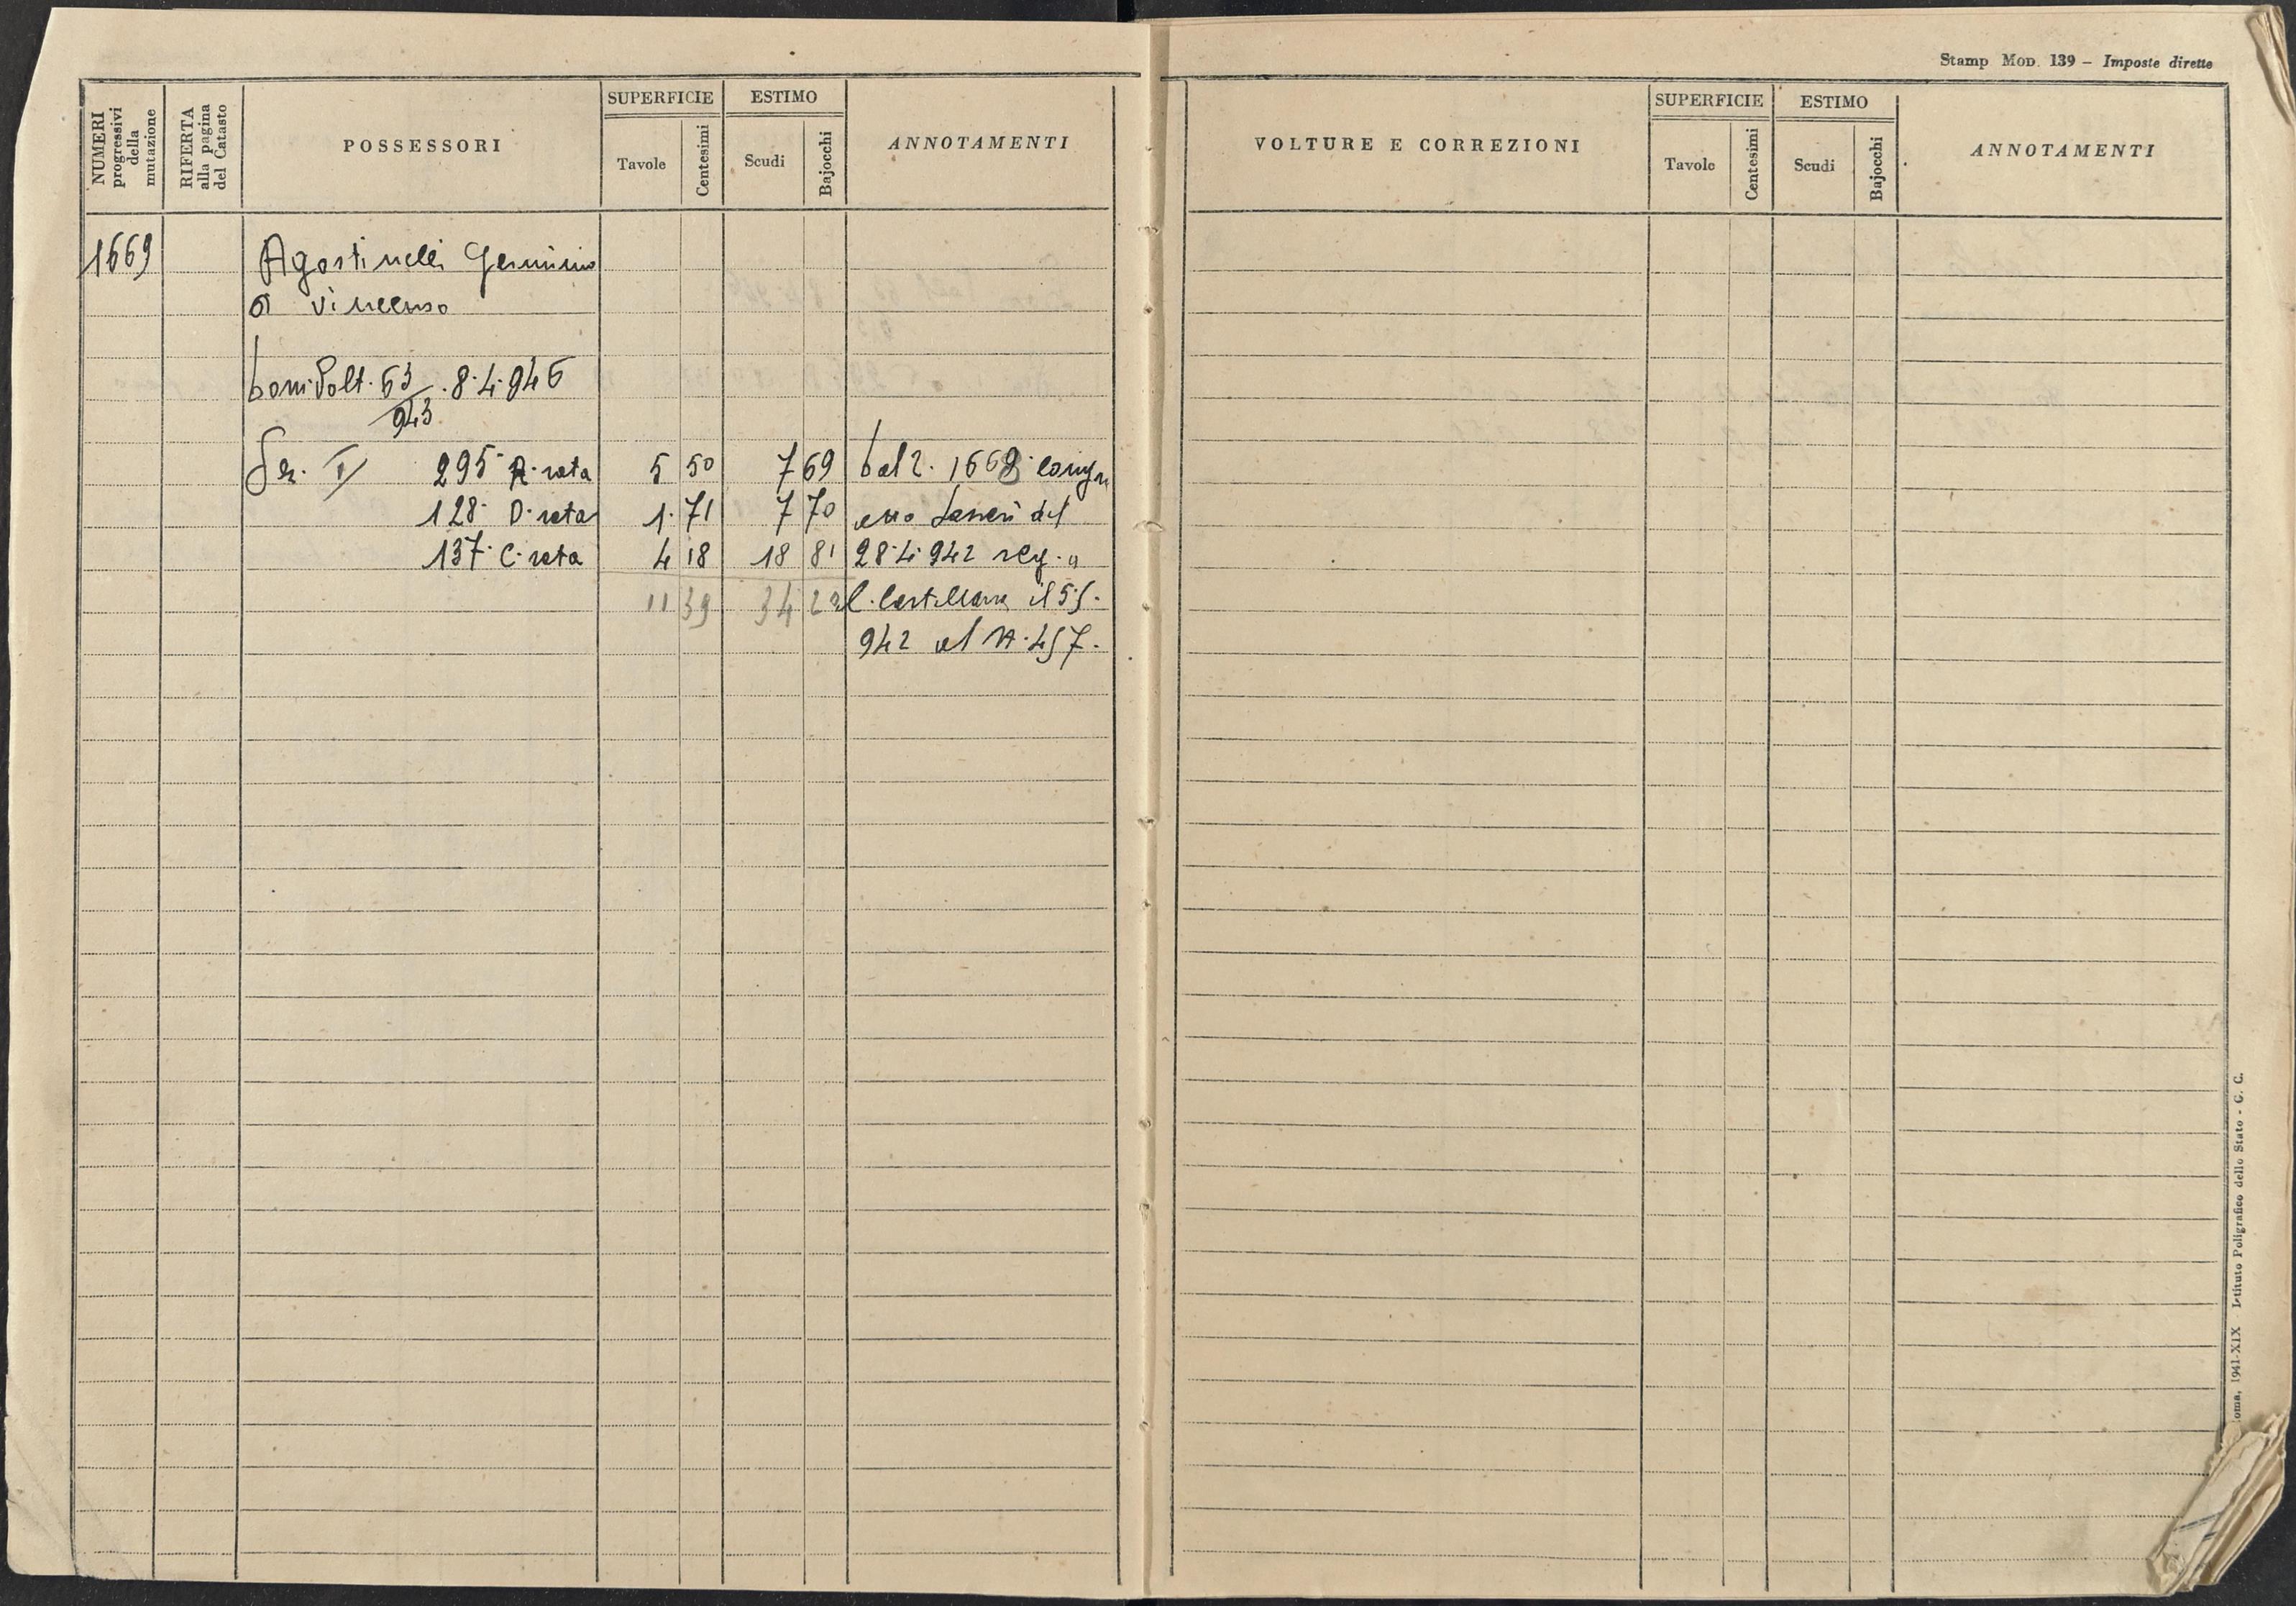 Stamp Mod. 139 – Imposte dirette
NUMERI progressivi della mutazione
RIFERTA alla pagina del Catasto
POSSESSORI
SUPERFICIE
Tavole
Centesimi
ESTIMO
Scudi
Bajocchi
ANNOTAMENTI
VOLTURE E CORREZIONI
SUPERFICIE
Tavole
Centesimi
ESTIMO
Scudi
Bajocchi
ANNOTAMENTI
1669 Agostinelli Geminio
di Vincenzo
Volt. 63 . 8.4.946
943
Sez. I 295 A. rata 5 50 7 69 Dal 2. 1668
128 D. rata 1 71 7 70 del
137 C. rata 4 18 18 81 28.4.942 reg. a
11 39 34 20 C. Castellana il 5.5.
942 al N. 457.
oma, 1941-XIX Istituto Poligrafico dello Stato - G. C.